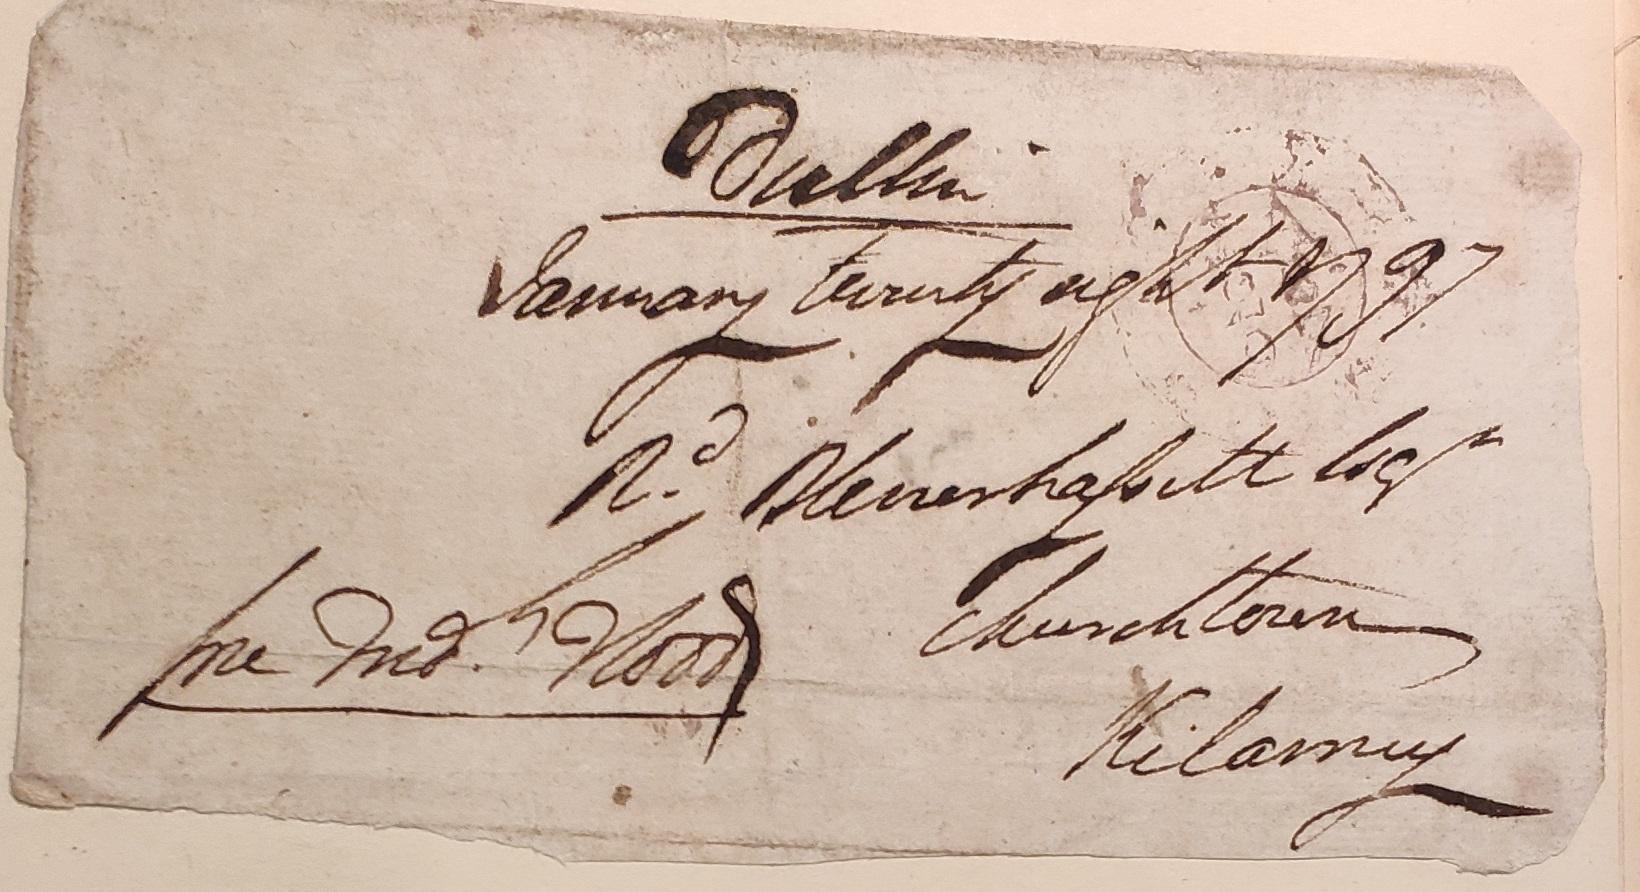 Dublin
January twenty eight 1797
R.d Blennerhassett Esqr
Churchtown
Kilarney
free Fredk. Flood